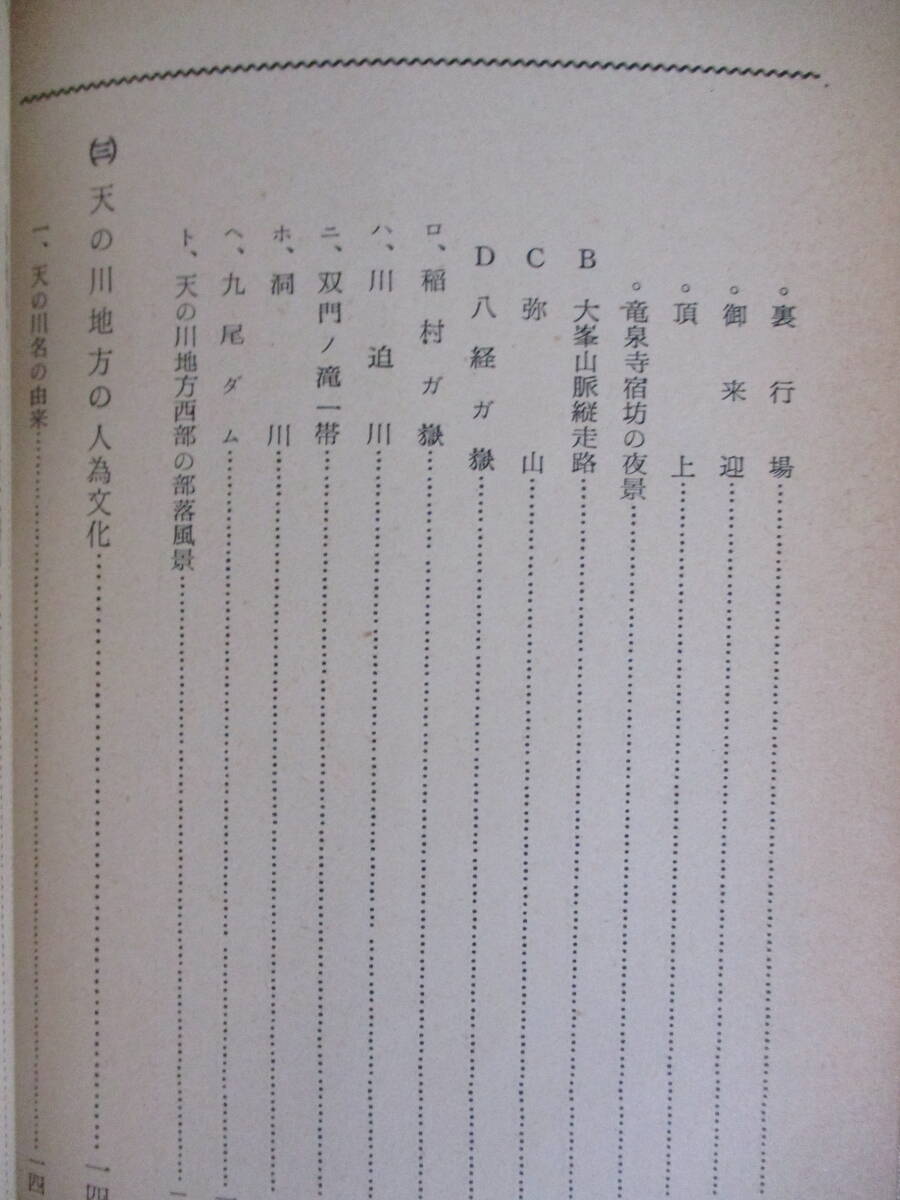 。裏行場……
。御来迎……
。頂上……
。竜泉寺宿坊の夜景……
B 大峯山脈縦走路……
C 弥山……
D 八経ガ嶽……
ロ、稲村ガ嶽……
ハ、川迫川……
ニ、双門ノ滝一帯……
ホ、洞川……
ヘ、九尾ダム……
ト、天の川地方西部の部落風景……
㈢ 天の川地方の人為文化……一四
一、天の川名の由来……一四